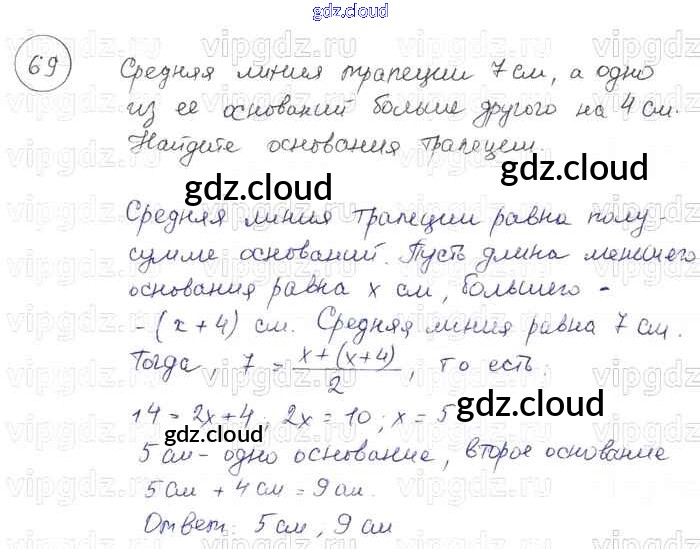 gdz.cloud
69
Средняя линия трапеции 7 см, а одно
из ее оснований больше другого на 4 см.
Найдите основания трапеции.
gdz.cloud
gdz.cloud
Средняя линия трапеции равна полу-
сумме оснований. Пусть длина меньшего
основания равна x см, большего -
- (x + 4) см. Средняя линия равна 7 см.
Тогда, 7 = (x + (x + 4))/2, то есть:
14 = 2x + 4; 2x = 10; x = 5
gdz.cloud
gdz.cloud
5 см - одно основание, второе основание
5 см + 4 см = 9 см.
Ответ: 5 см, 9 см